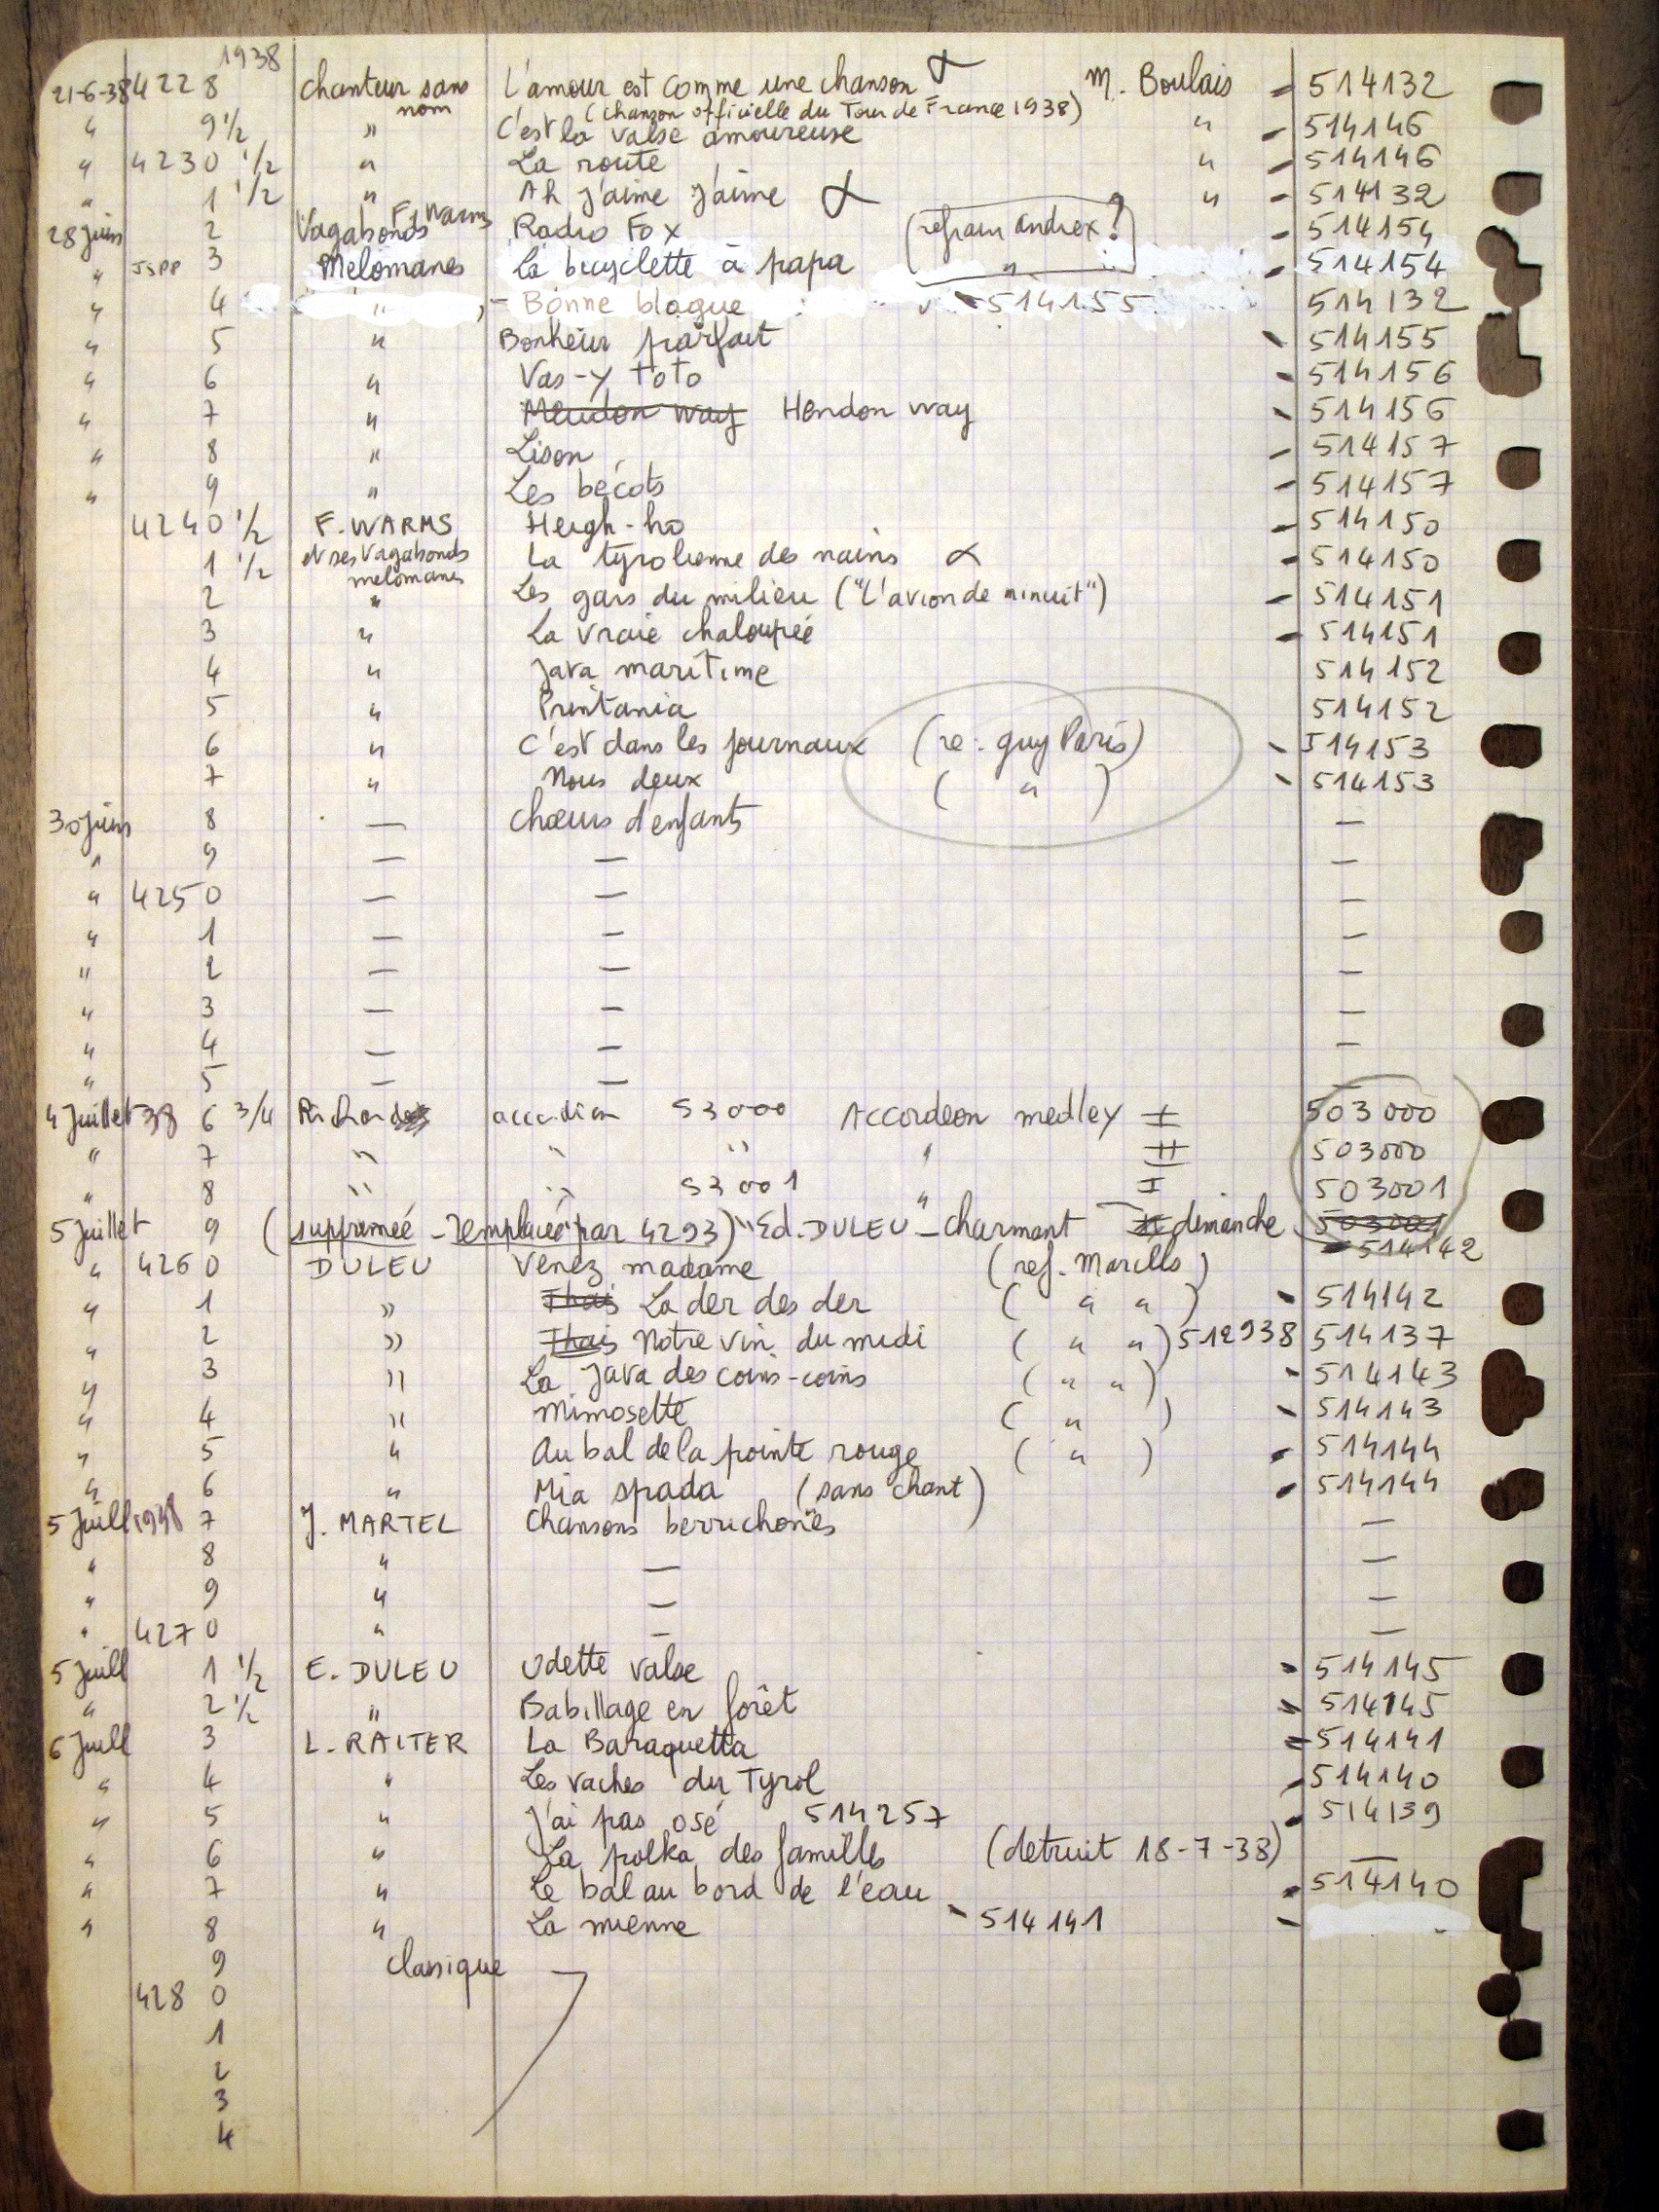 1938
21-6-38 4228 Chanteur sans nom L'amour est comme une chanson ∝ M. Boulais - 514132
(chanson officielle du Tour de France 1938)
" 9 1/2 " C'est la valse amoureuse " - 514146
" 4230 1/2 " La route " - 514146
" 1 1/2 " Ah j'aime j'aime ∝ " - 514132
28 juin 2 Vagabonds F. Warms Radio Fox (refrain andrex? - 514154
" 3 Melomanes La bicyclette à papa " - 514154
" 4 " - Bonne blague - 514155 514132
" 5 " Bonheur parfait - 514155
" 6 " Vas-y toto - 514156
" 7 " Meudon way Hendon way - 514156
" 8 " Lison - 514157
" 9 " Les bécots - 514157
4240 1/2 F. WARMS Heigh-ho - 514150
1 1/2 et ses Vagabonds melomanes La tyrolienne des nains ∝ - 514150
2 " Les gars du milieu ("L'avion de minuit") - 514151
3 " La vraie chaloupée - 514151
4 " Java maritime 514152
5 " Printania 514152
6 " C'est dans les journaux (re: guy Paris) - 514153
7 " Nous deux ( " ) - 514153
30 juin 8 — Chœurs d'enfants —
" 9 — — —
" 4250 — — —
" 1 — — —
" 2 — — —
" 3 — — —
" 4 — — —
" 5 — — —
4 Juillet 38 6 3/4 53000 Accordeon medley I 503000
" 7 " " " " II 503000
" 8 " " 53001 " I 503001
5 Juillet 9 (suppromeé - remplacée par 4293) "Ed. DULEU - charmant dimanche 503001
- 514142
" 4260 DULEU Venez madame (ref. Marcllo)
" 1 " Thais La der des der ( " " ) - 514142
" 2 " Thais Notre vin du midi ( " " ) 512938 514137
" 3 " La java des coins-coins ( " " ) - 514143
" 4 " Mimosette ( " ) - 514143
" 5 " Au bal de la pointe rouge ( " ) - 514144
" 6 " Mia spada (sans chant) - 514144
5 Juill 1938 7 J. MARTEL Chansons berrichones —
" 8 " — —
" 9 " — —
" 4270 " — —
5 Juill 1 1/2 E. DULEU Odette valse - 514145
" 2 1/2 " Babillage en forêt - 514145
6 Juill 3 L. RAITER La Baraquetta - 514141
" 4 " Les vaches du Tyrol - 514140
" 5 " J'ai pas osé 514257 - 514139
" 6 " La polka des familles (detruit 18-7-38) —
" 7 " Le bal au bord de l'eau - 514140
" 8 " La mienne - 514141 -
9 classique
4280
1
2
3
4